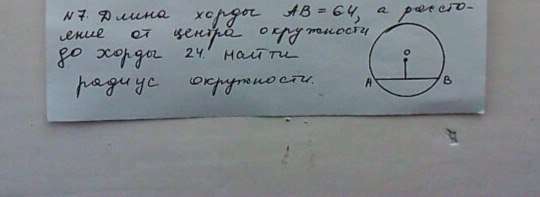 №7. Длина хорды АВ = 64, а рассто-
яние от центра окружности
до хорды 24. найти
радиус окружности.
О
А В